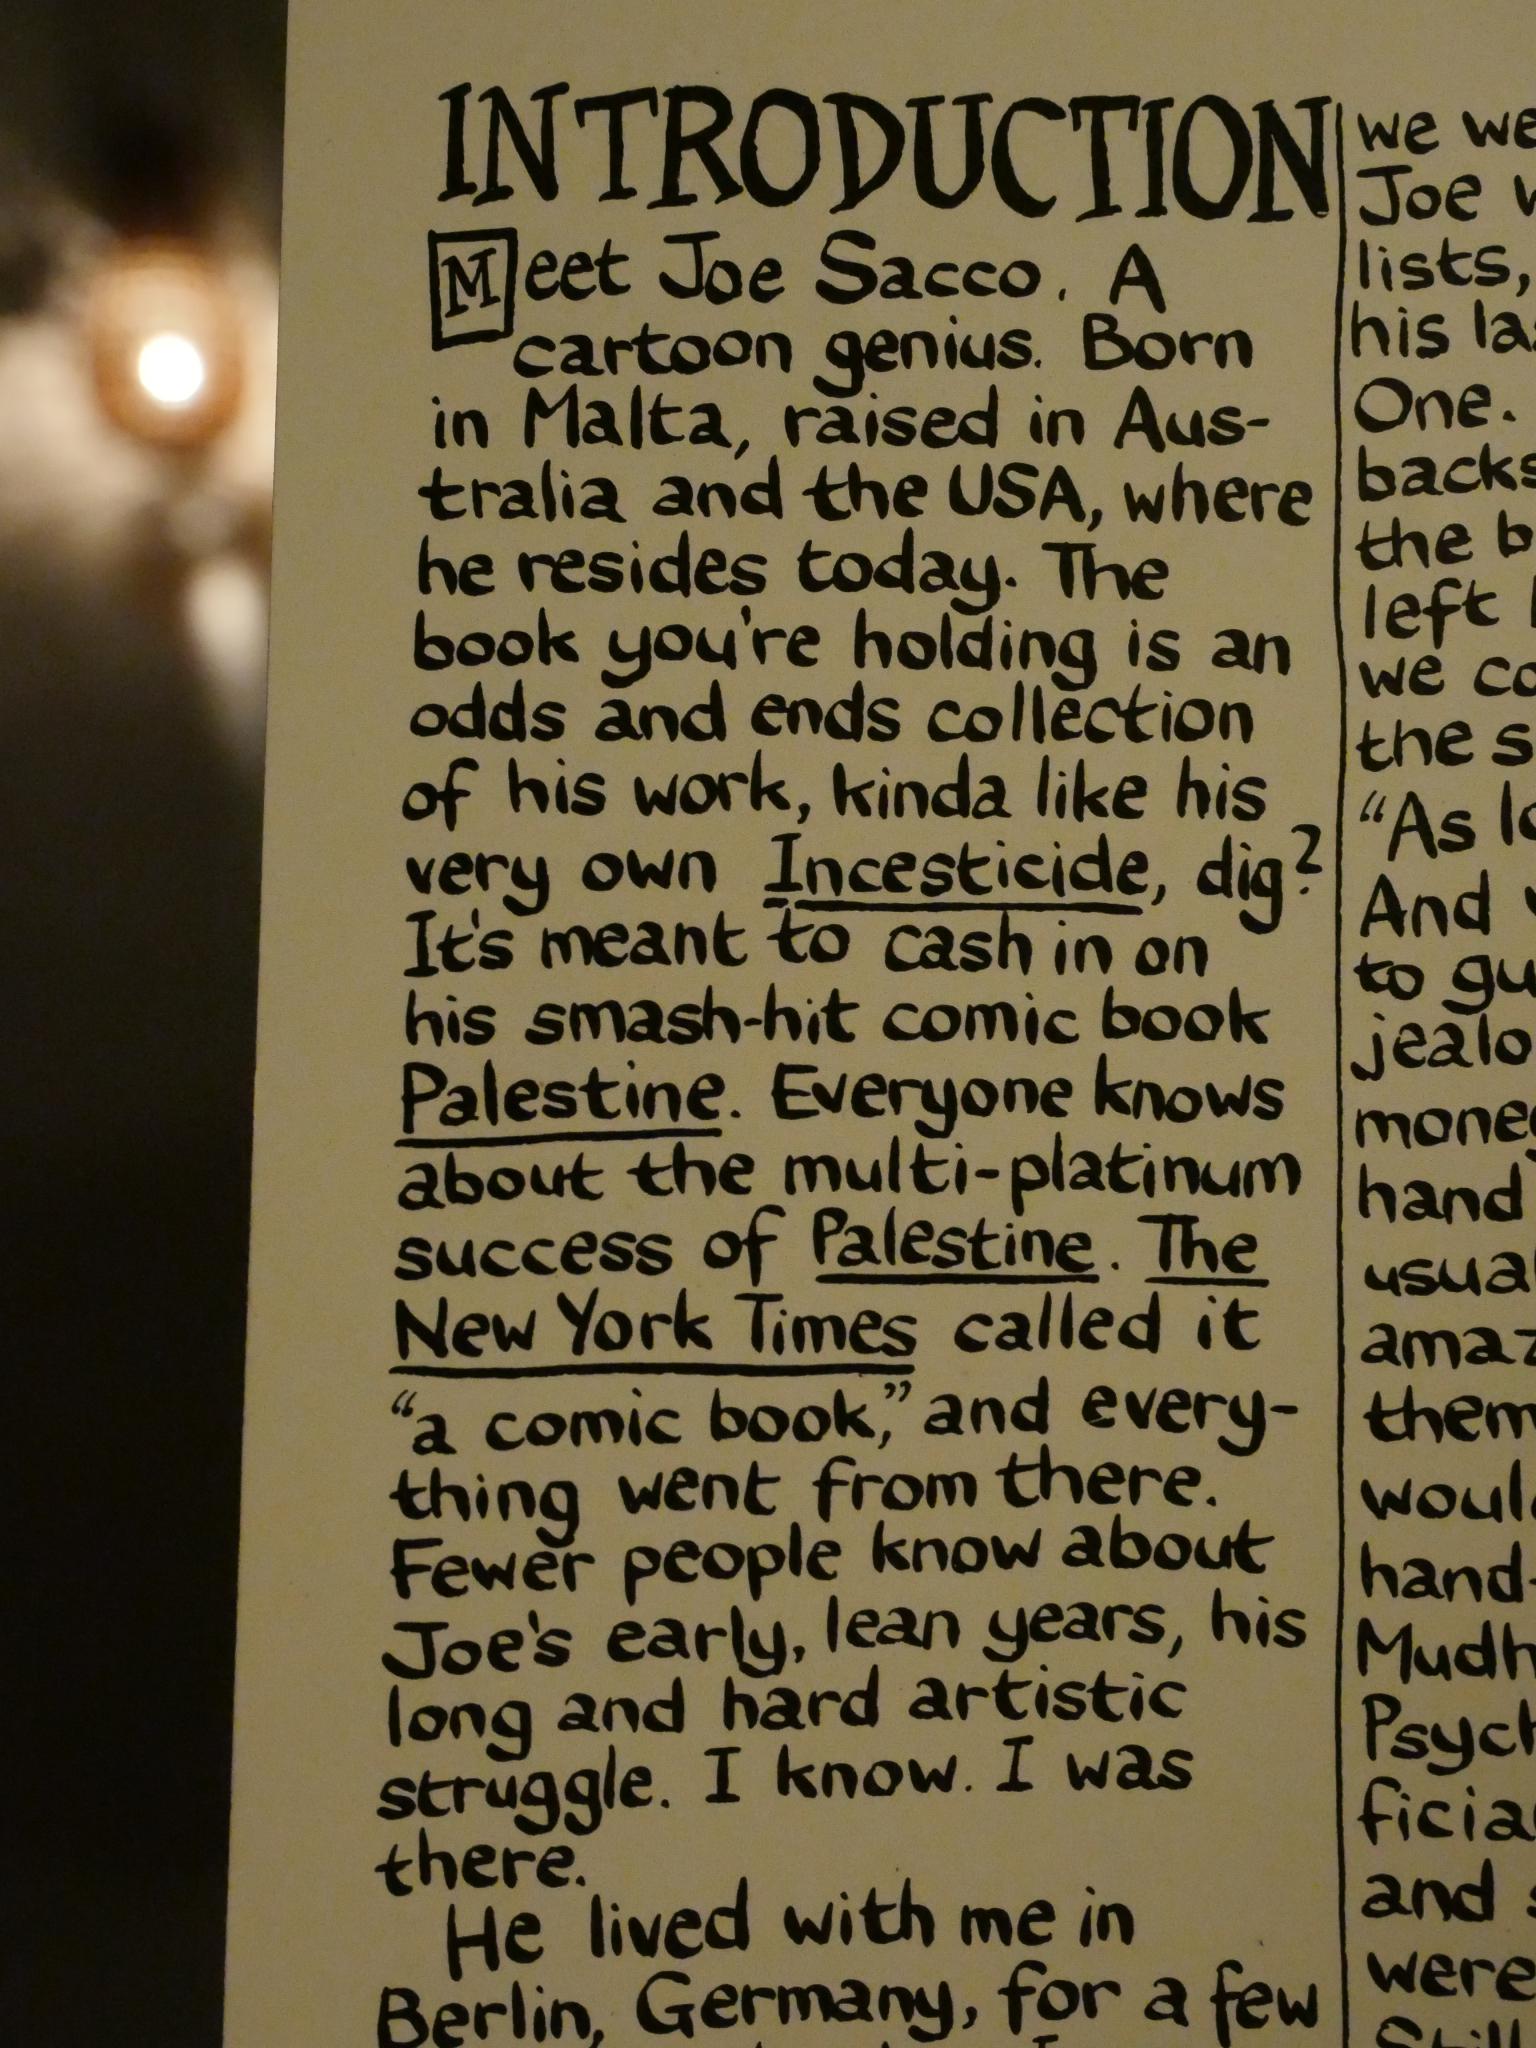 INTRODUCTION
Meet Joe Sacco. A
cartoon genius. Born
in Malta, raised in Aus-
tralia and the USA, where
he resides today. The
book you're holding is an
odds and ends collection
of his work, kinda like his
very own Incesticide, dig?
It's meant to cash in on
his smash-hit comic book
Palestine. Everyone knows
about the multi-platinum
success of Palestine. The
New York Times called it
"a comic book," and every-
thing went from there.
Fewer people know about
Joe's early, lean years, his
long and hard artistic
struggle. I know. I was
there.
He lived with me in
Berlin, Germany, for a few
we we
Joe
lists,
his la
One.
backs
the b
left
we co
the s
"As lo
And
to gu
jealo
money
hand
usual
amaz
them
would
hand-
Mudh
Psych
ficia
and
were
Still